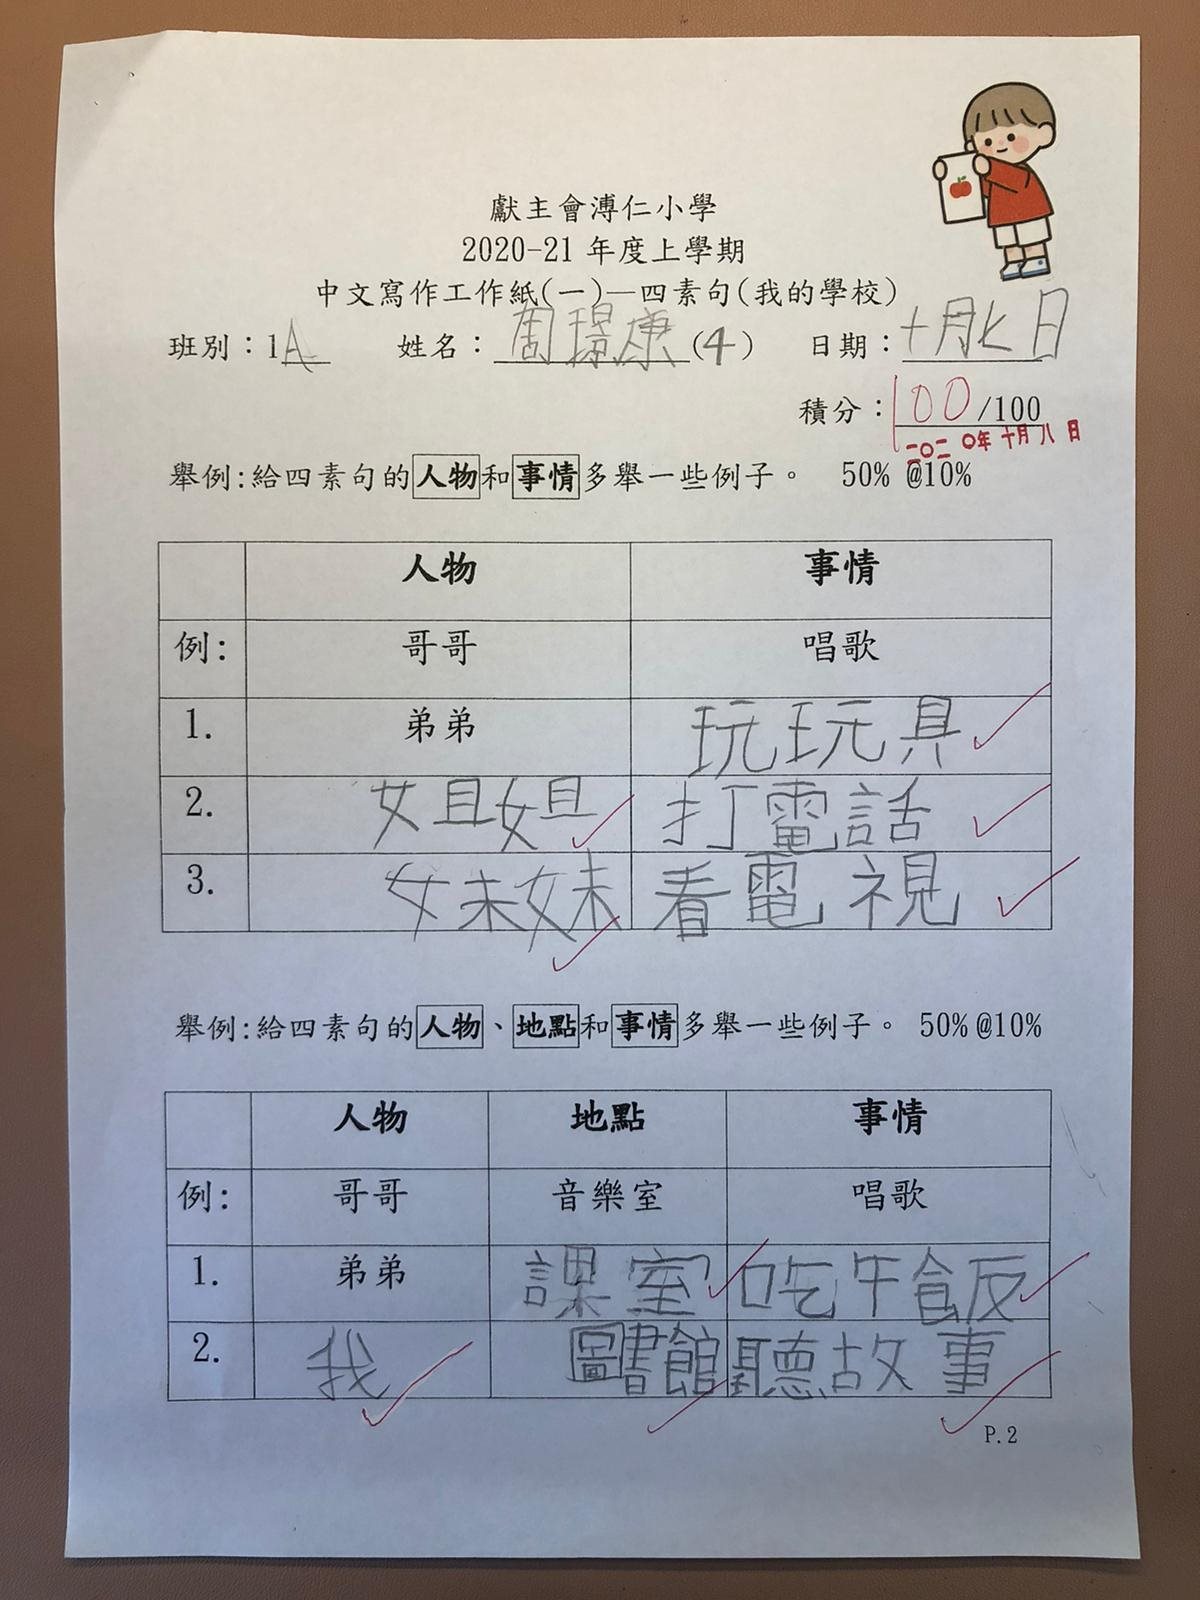 獻主會溥仁小學
2020-21 年度上學期
中文寫作工作紙(一)—四素句(我的學校)
班別：1A 姓名：周璟康(4) 日期：十月七日
積分：100/100
二〇二〇年十月八日
舉例:給四素句的人物和事情多舉一些例子。 50% @10%
人物 事情
例: 哥哥 唱歌
1. 弟弟 玩玩具
2. 姐姐 打電話
3. 妹妹 看電視
舉例:給四素句的人物、地點和事情多舉一些例子。 50%@10%
人物 地點 事情
例: 哥哥 音樂室 唱歌
1. 弟弟 課室 吃午飯
2. 我 圖書館 聽故事
P.2